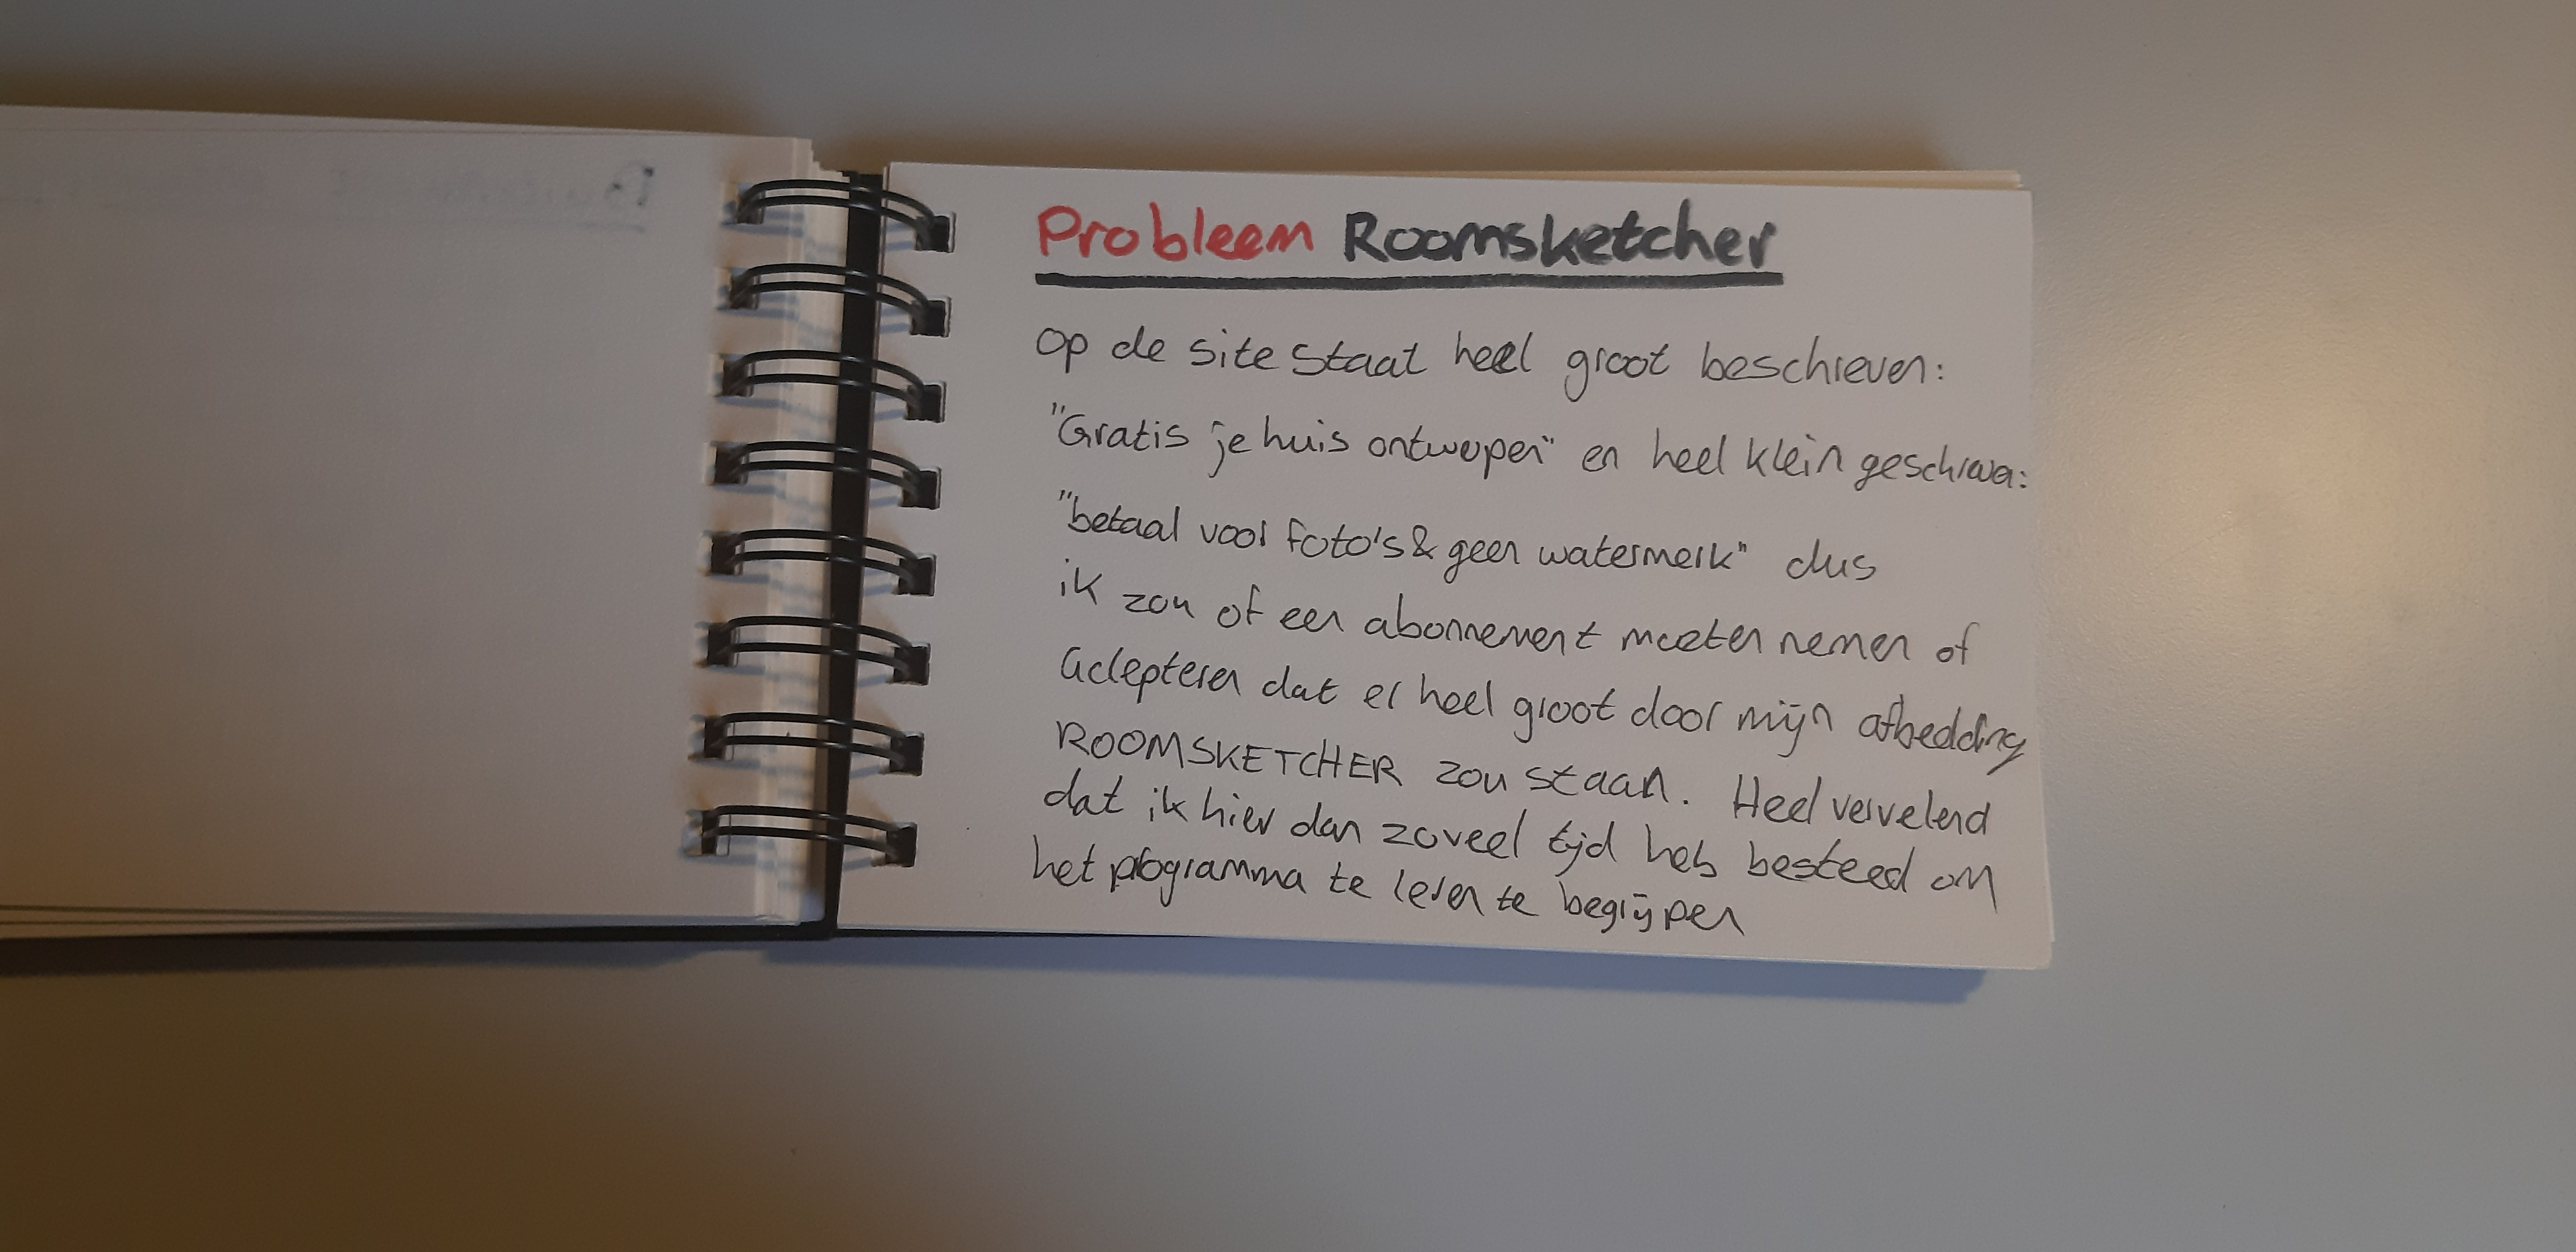 Probleem Roomsketcher
Op de site staat heel groot beschreven:
"Gratis je huis ontwerpen" en heel klein geschreven:
"betaal voor foto's & geen watermerk" dus
ik zou of een abonnement moeten nemen of
accepteren dat er heel groot door mijn afbeelding
ROOMSKETCHER zou staan. Heel vervelend
dat ik hier dan zoveel tijd heb besteed om
het programma te leren te begrijpen